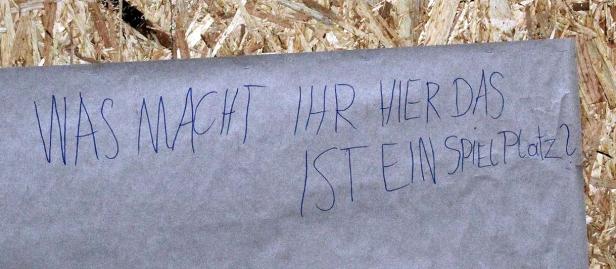 WAS MACHT IHR HIER DAS
IST EIN SPIELPlatz?